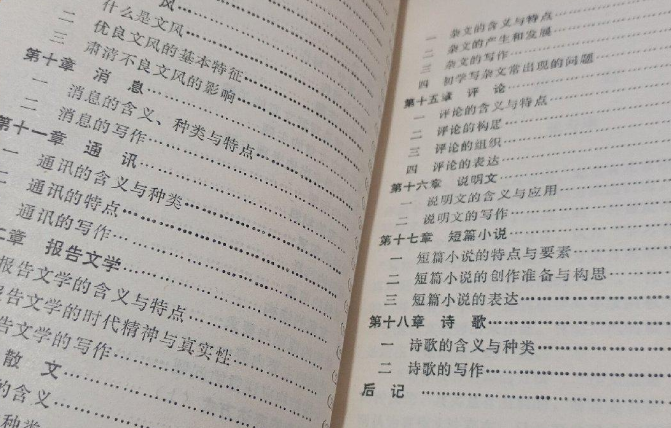 风
什么是文风
二 优良文风的基本特征
三 肃清不良文风的影响
第十章 消 息
一 消息的含义、种类与特点
二 消息的写作
第十一章 通 讯
一 通讯的含义与种类
二 通讯的特点
通讯的写作
二章 报告文学
报告文学的含义与特点
报告文学的时代精神与真实性
告文学的写作
散 文
的含义
种类
一 杂文的含义与特点
二 杂文的产生和发展
三 杂文的写作
四 初学写杂文常出现的问题
第十五章 评 论
一 评论的含义与特点
二 评论的构思
三 评论的组织
四 评论的表达
第十六章 说明文
一 说明文的含义与应用
二 说明文的写作
第十七章 短篇小说
一 短篇小说的特点与要素
二 短篇小说的创作准备与构思
三 短篇小说的表达
第十八章 诗 歌
一 诗歌的含义与种类
二 诗歌的写作
后 记